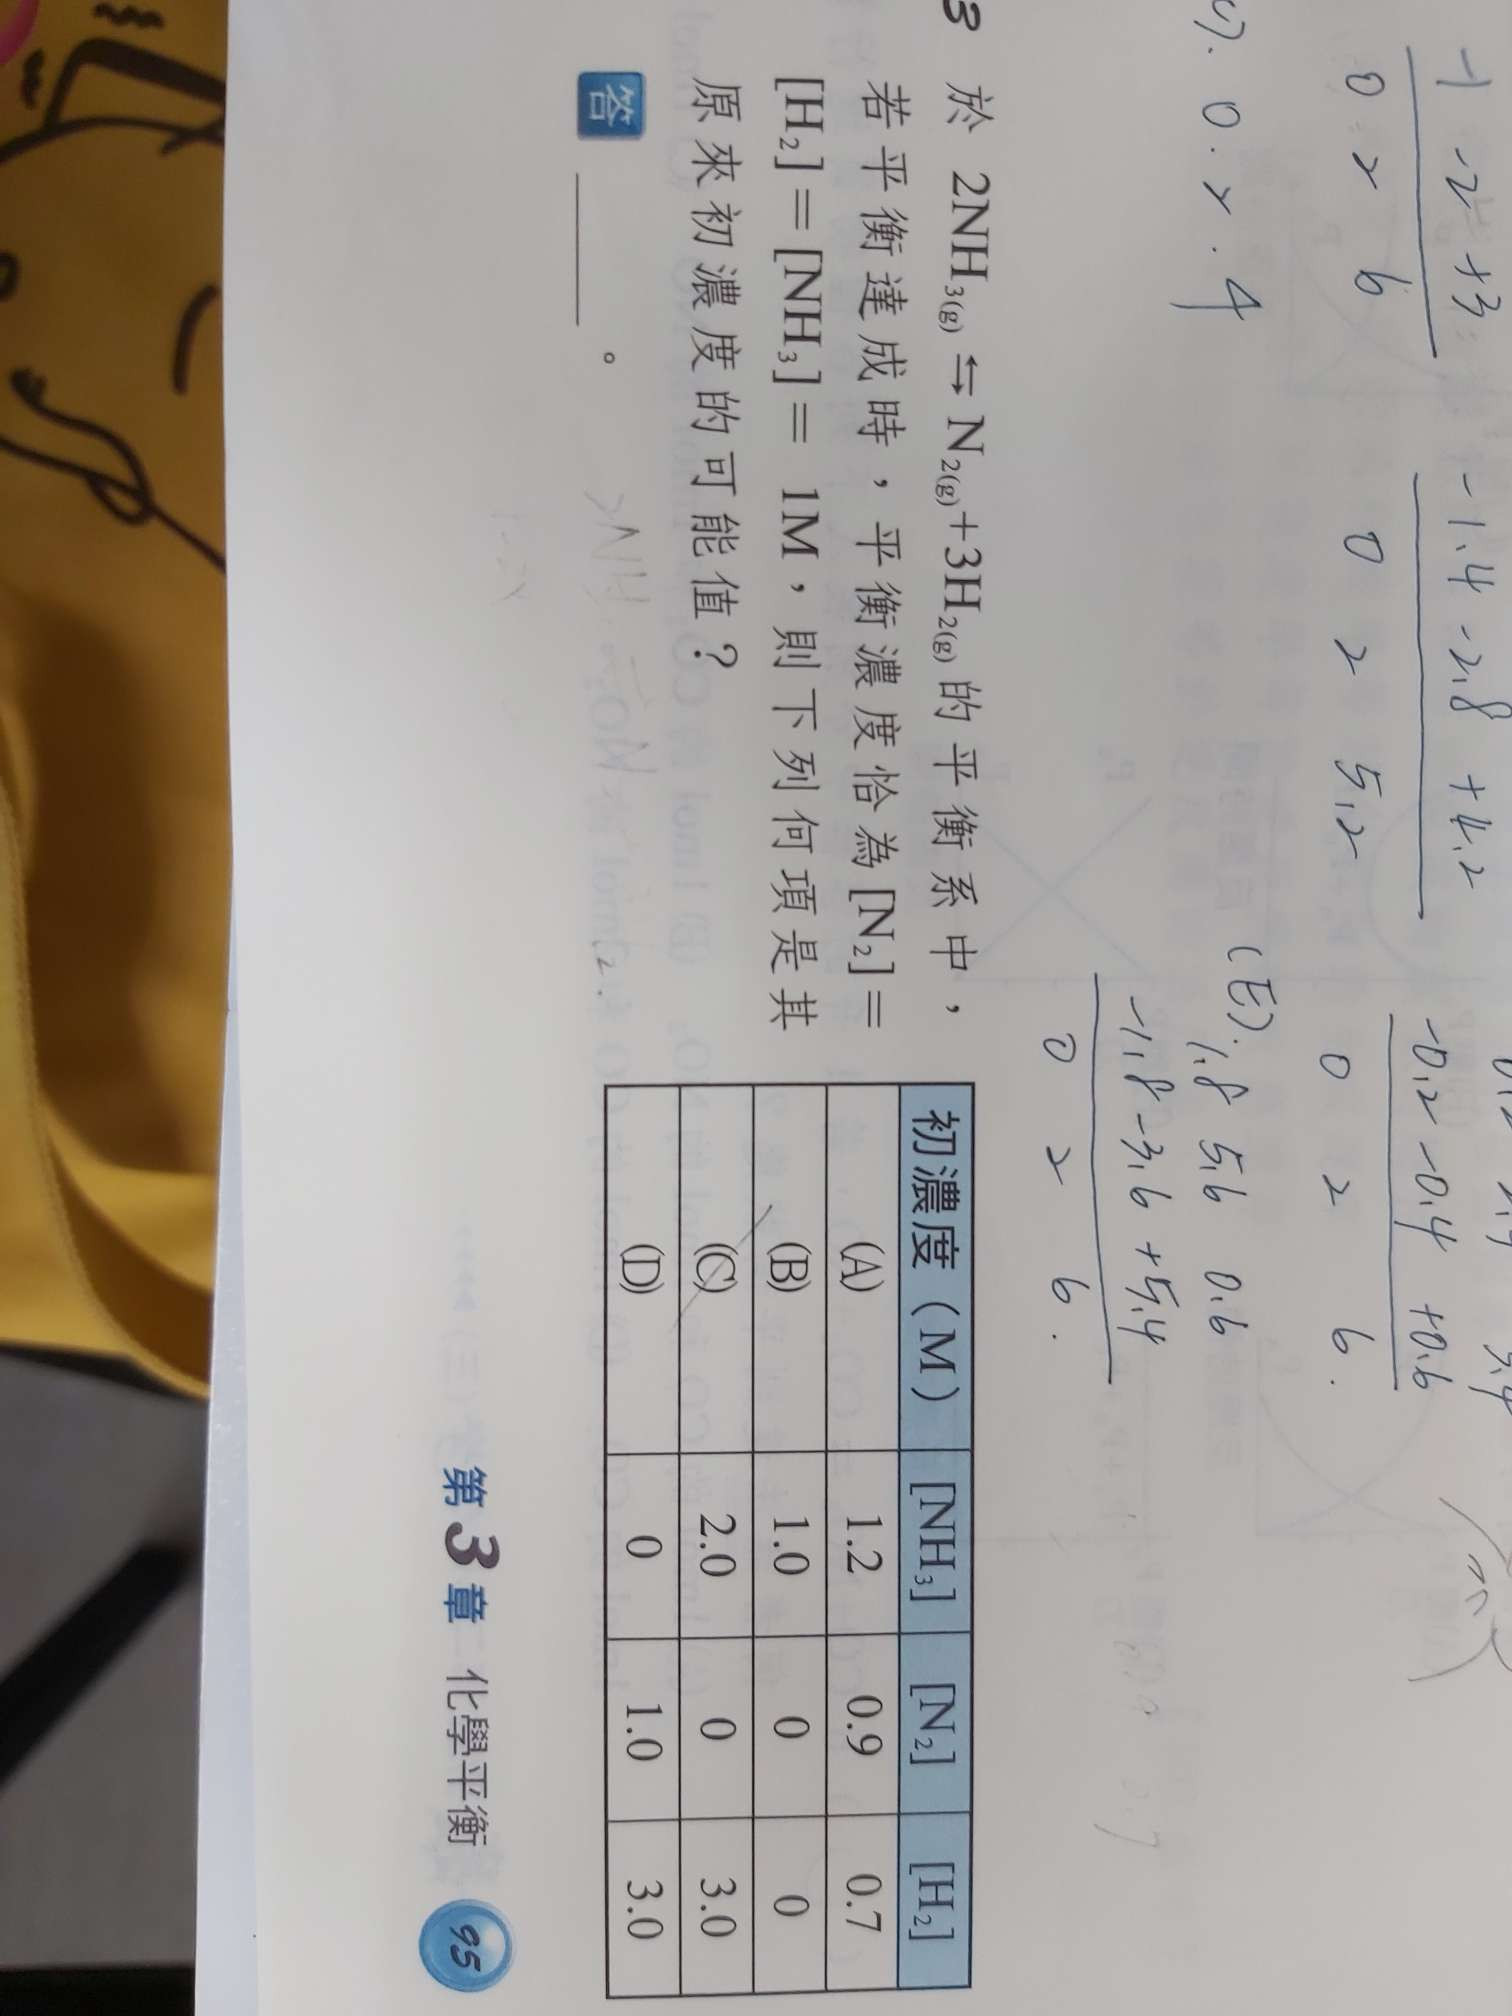 -1 -2 +3
0 2 6
-1.4 -2.8 +4.2
0 2 5.2
-0.2 -0.4 +0.6
0 2 6.
0. 2. 4
(E). 1.8 5.6 0.6
-1.8 -3.6 +5.4
0 2 6.
3 於 2NH₃(g) ⇆ N₂(g)+3H₂(g)的平衡系中，
若平衡達成時，平衡濃度恰為[N₂]＝
[H₂]＝[NH₃]＝ 1M，則下列何項是其
原來初濃度的可能值？
答 ______。
初濃度（M） [NH₃] [N₂] [H₂]
(A) 1.2 0.9 0.7
(B) 1.0 0 0
(C) 2.0 0 3.0
(D) 0 1.0 3.0
第3章 化學平衡 95